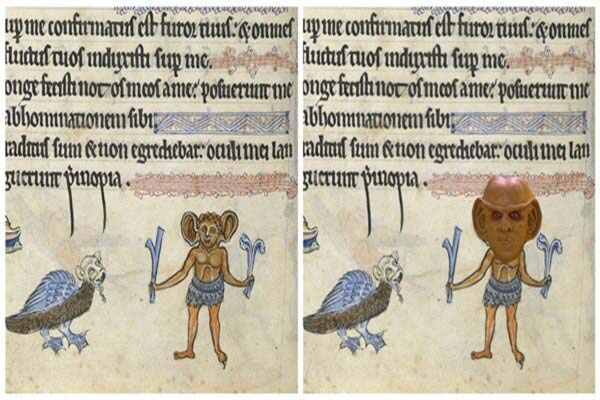 up me confirmatus est furor tuus: & omnes
fluctus tuos induxisti sup me.
onge fecisti notos meos a me: posuerunt me
abhominationem sibi:
raditus sum & non egrediebar: oculi mei lan
guerunt p̄ inopia .
up me confirmatus est furor tuus: & omnes
fluctus tuos induxisti sup me.
onge fecisti notos meos a me: posuerunt me
abhominationem sibi:
raditus sum & non egrediebar: oculi mei lan
guerunt p̄ inopia .